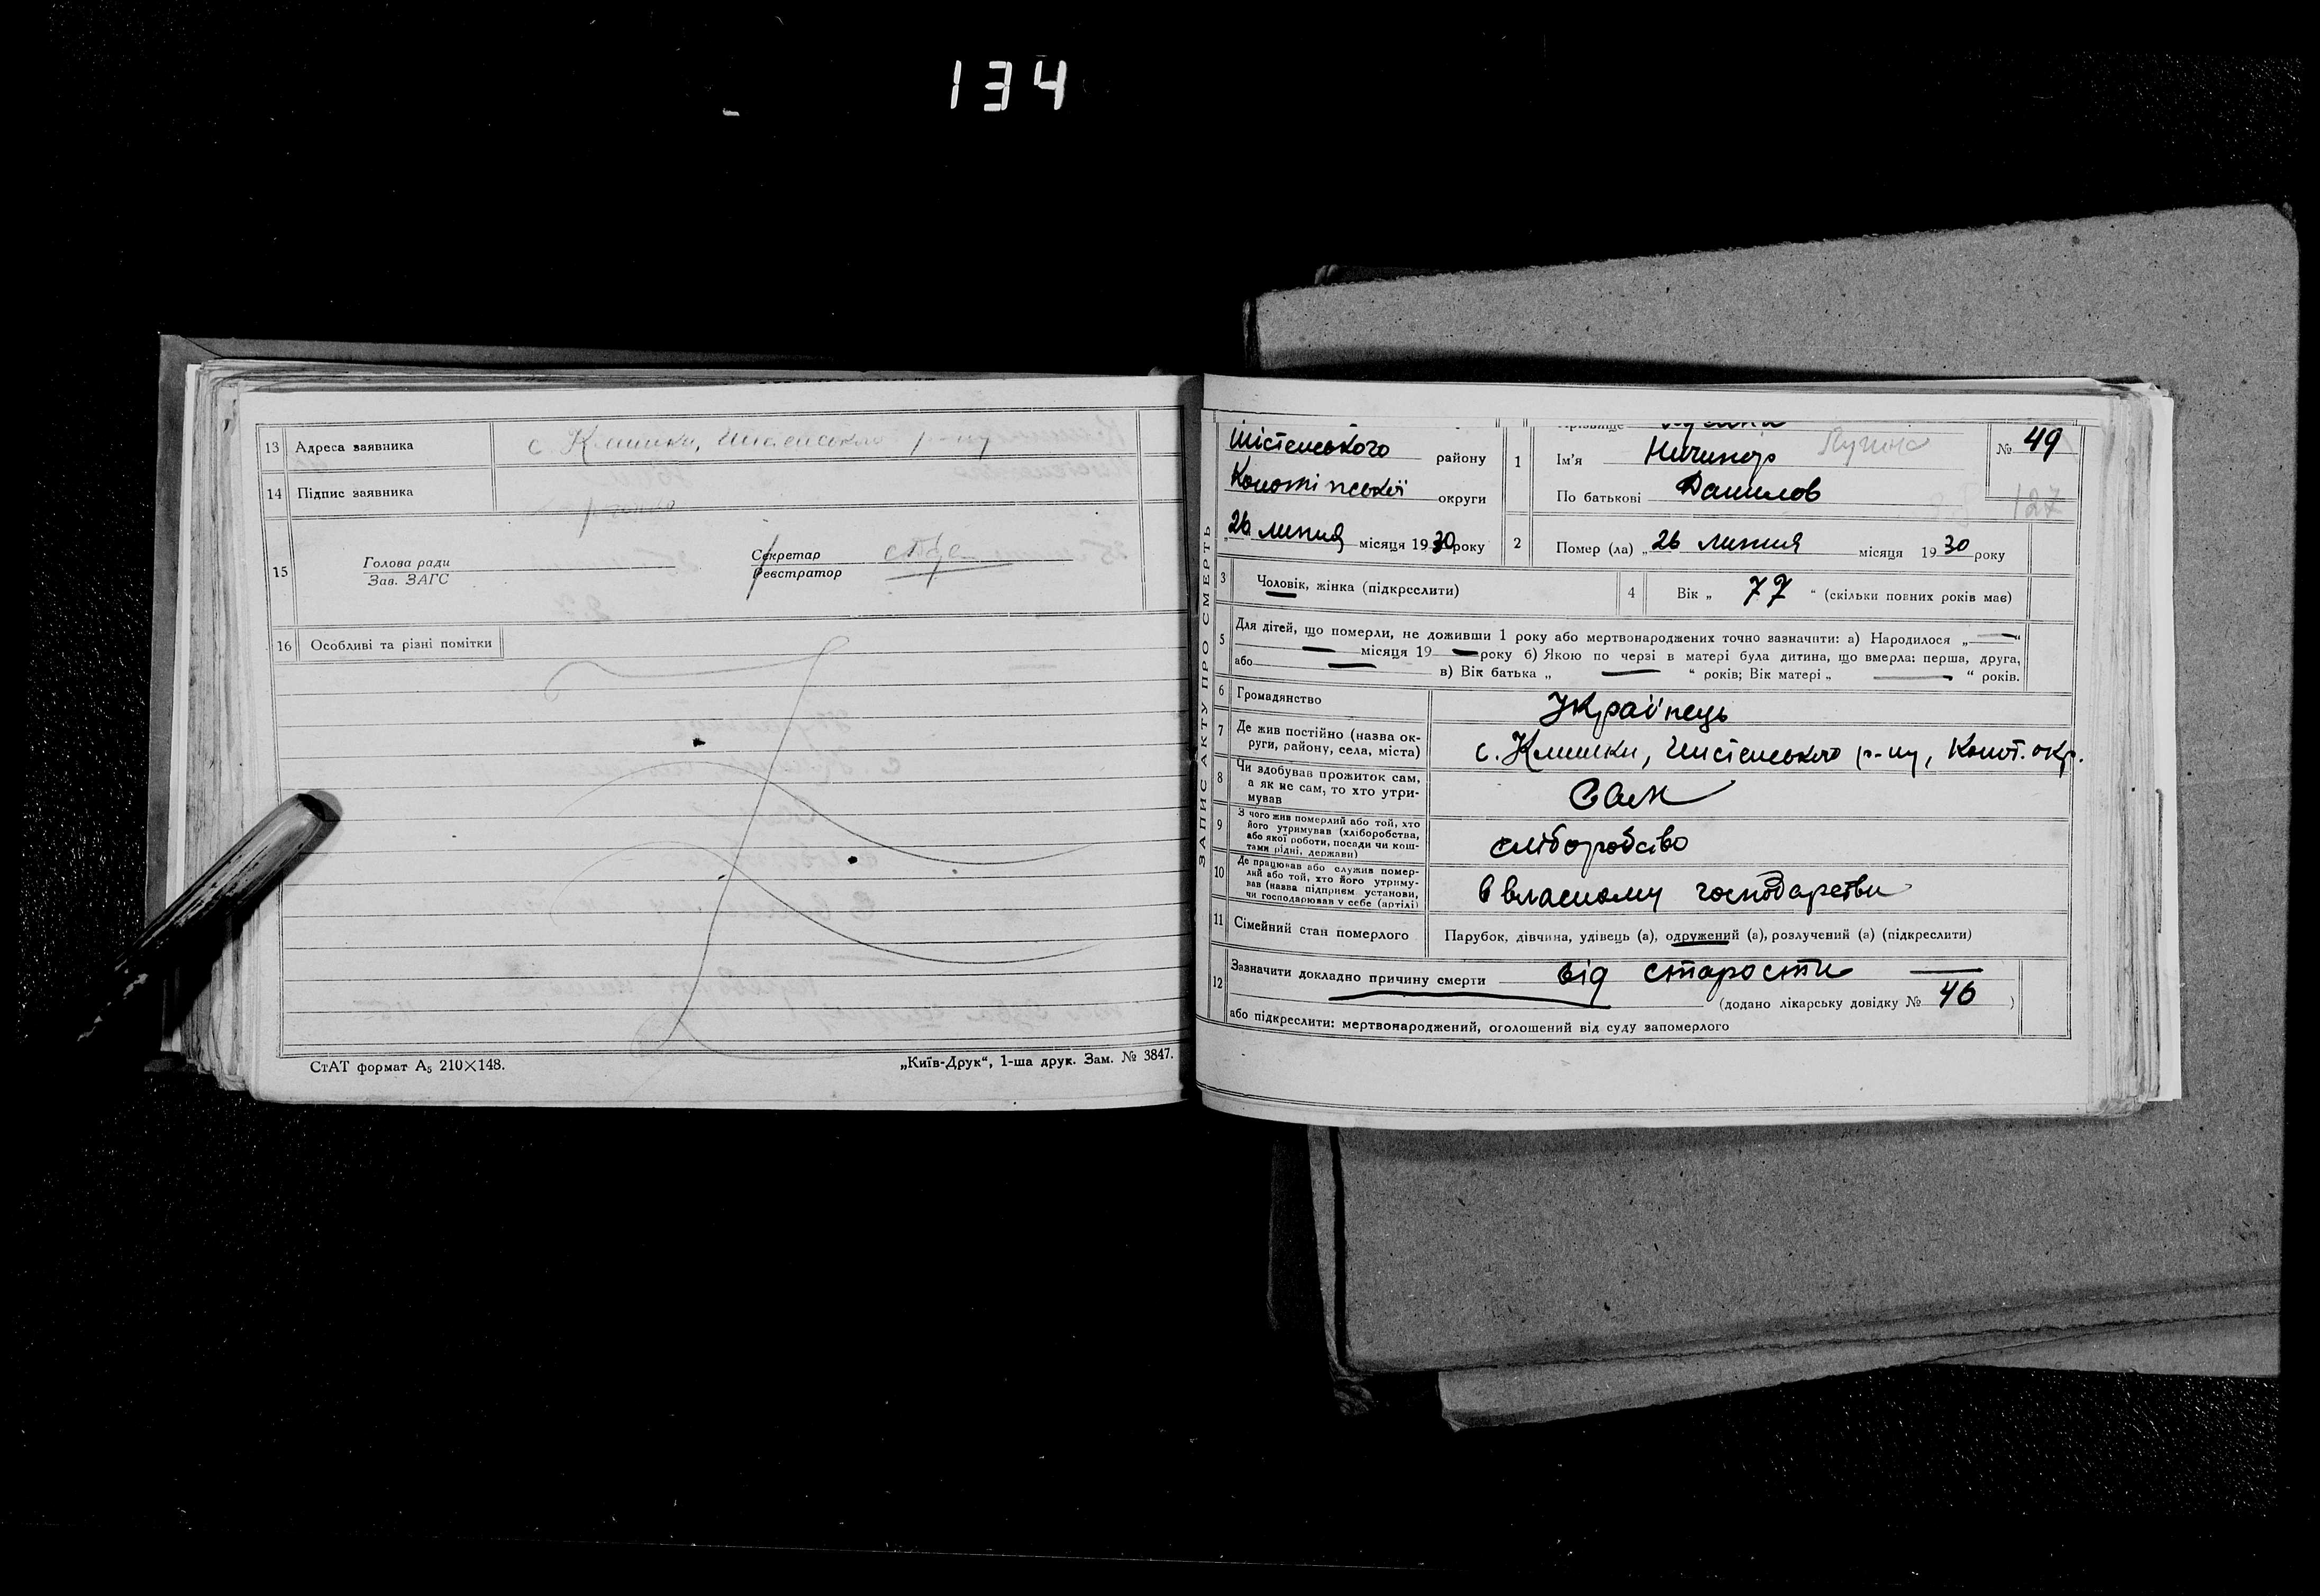 134
13 Адреса заявника с. Клишки, Шостенського р-ну
14 Підпис заявника
15 Голова ради
Зав. ЗАГС
Секретар
Реєстратор
16 Особливі та різні помітки
СтАТ формат А₅ 210×148.
„Київ-Друк“, 1-ша друк. Зам. № 3847.
ЗАПИС АКТУ ПРО СМЕРТЬ
району
Конотіпської округи
26 липня місяця 1930 року
1 Прізвище
Ім'я Ничипор Лучина
По батькові Данилов
№ 49
127
2 Помер (ла) „26 липня місяця 1930 року
3 Чоловік, жінка (підкреслити)
4 Вік „ 77 “ (скільки повних років мав)
5 Для дітей, що померли, не доживши 1 року або мертвонароджених точно зазначити: а) Народилося „—“
— місяця 19 — року б) Якою по черзі в матері була дитина, що вмерла: перша, друга,
або — в) Вік батька „ — “ років; Вік матері „ — “ років.
6 Громадянство Українець
7 Де жив постійно (назва ок-
руги, району, села, міста) с. Клишки, Шостенського р-ну, Конот. окр.
8 Чи здобував прожиток сам,
а як не сам, то хто утри-
мував Сам
9 З чого жив померлий або той, хто
його утримував (хліборобства,
або якої роботи, посади чи кош-
тами рідні, держави) хліборобство
10 Де працював або служив помер-
лий або той, хто його утриму-
вав (назва підприєм. установи,
чи господарював у себе (артілі) в власному господарстви
11 Сімейний стан померлого Парубок, дівчина, удівець (а), одружений (а), розлучений (а) (підкреслити)
12 Зазначити докладно причину смерти від старости —
(додано лікарську довідку № 46 )
або підкреслити: мертвонароджений, оголошений від суду запомерлого